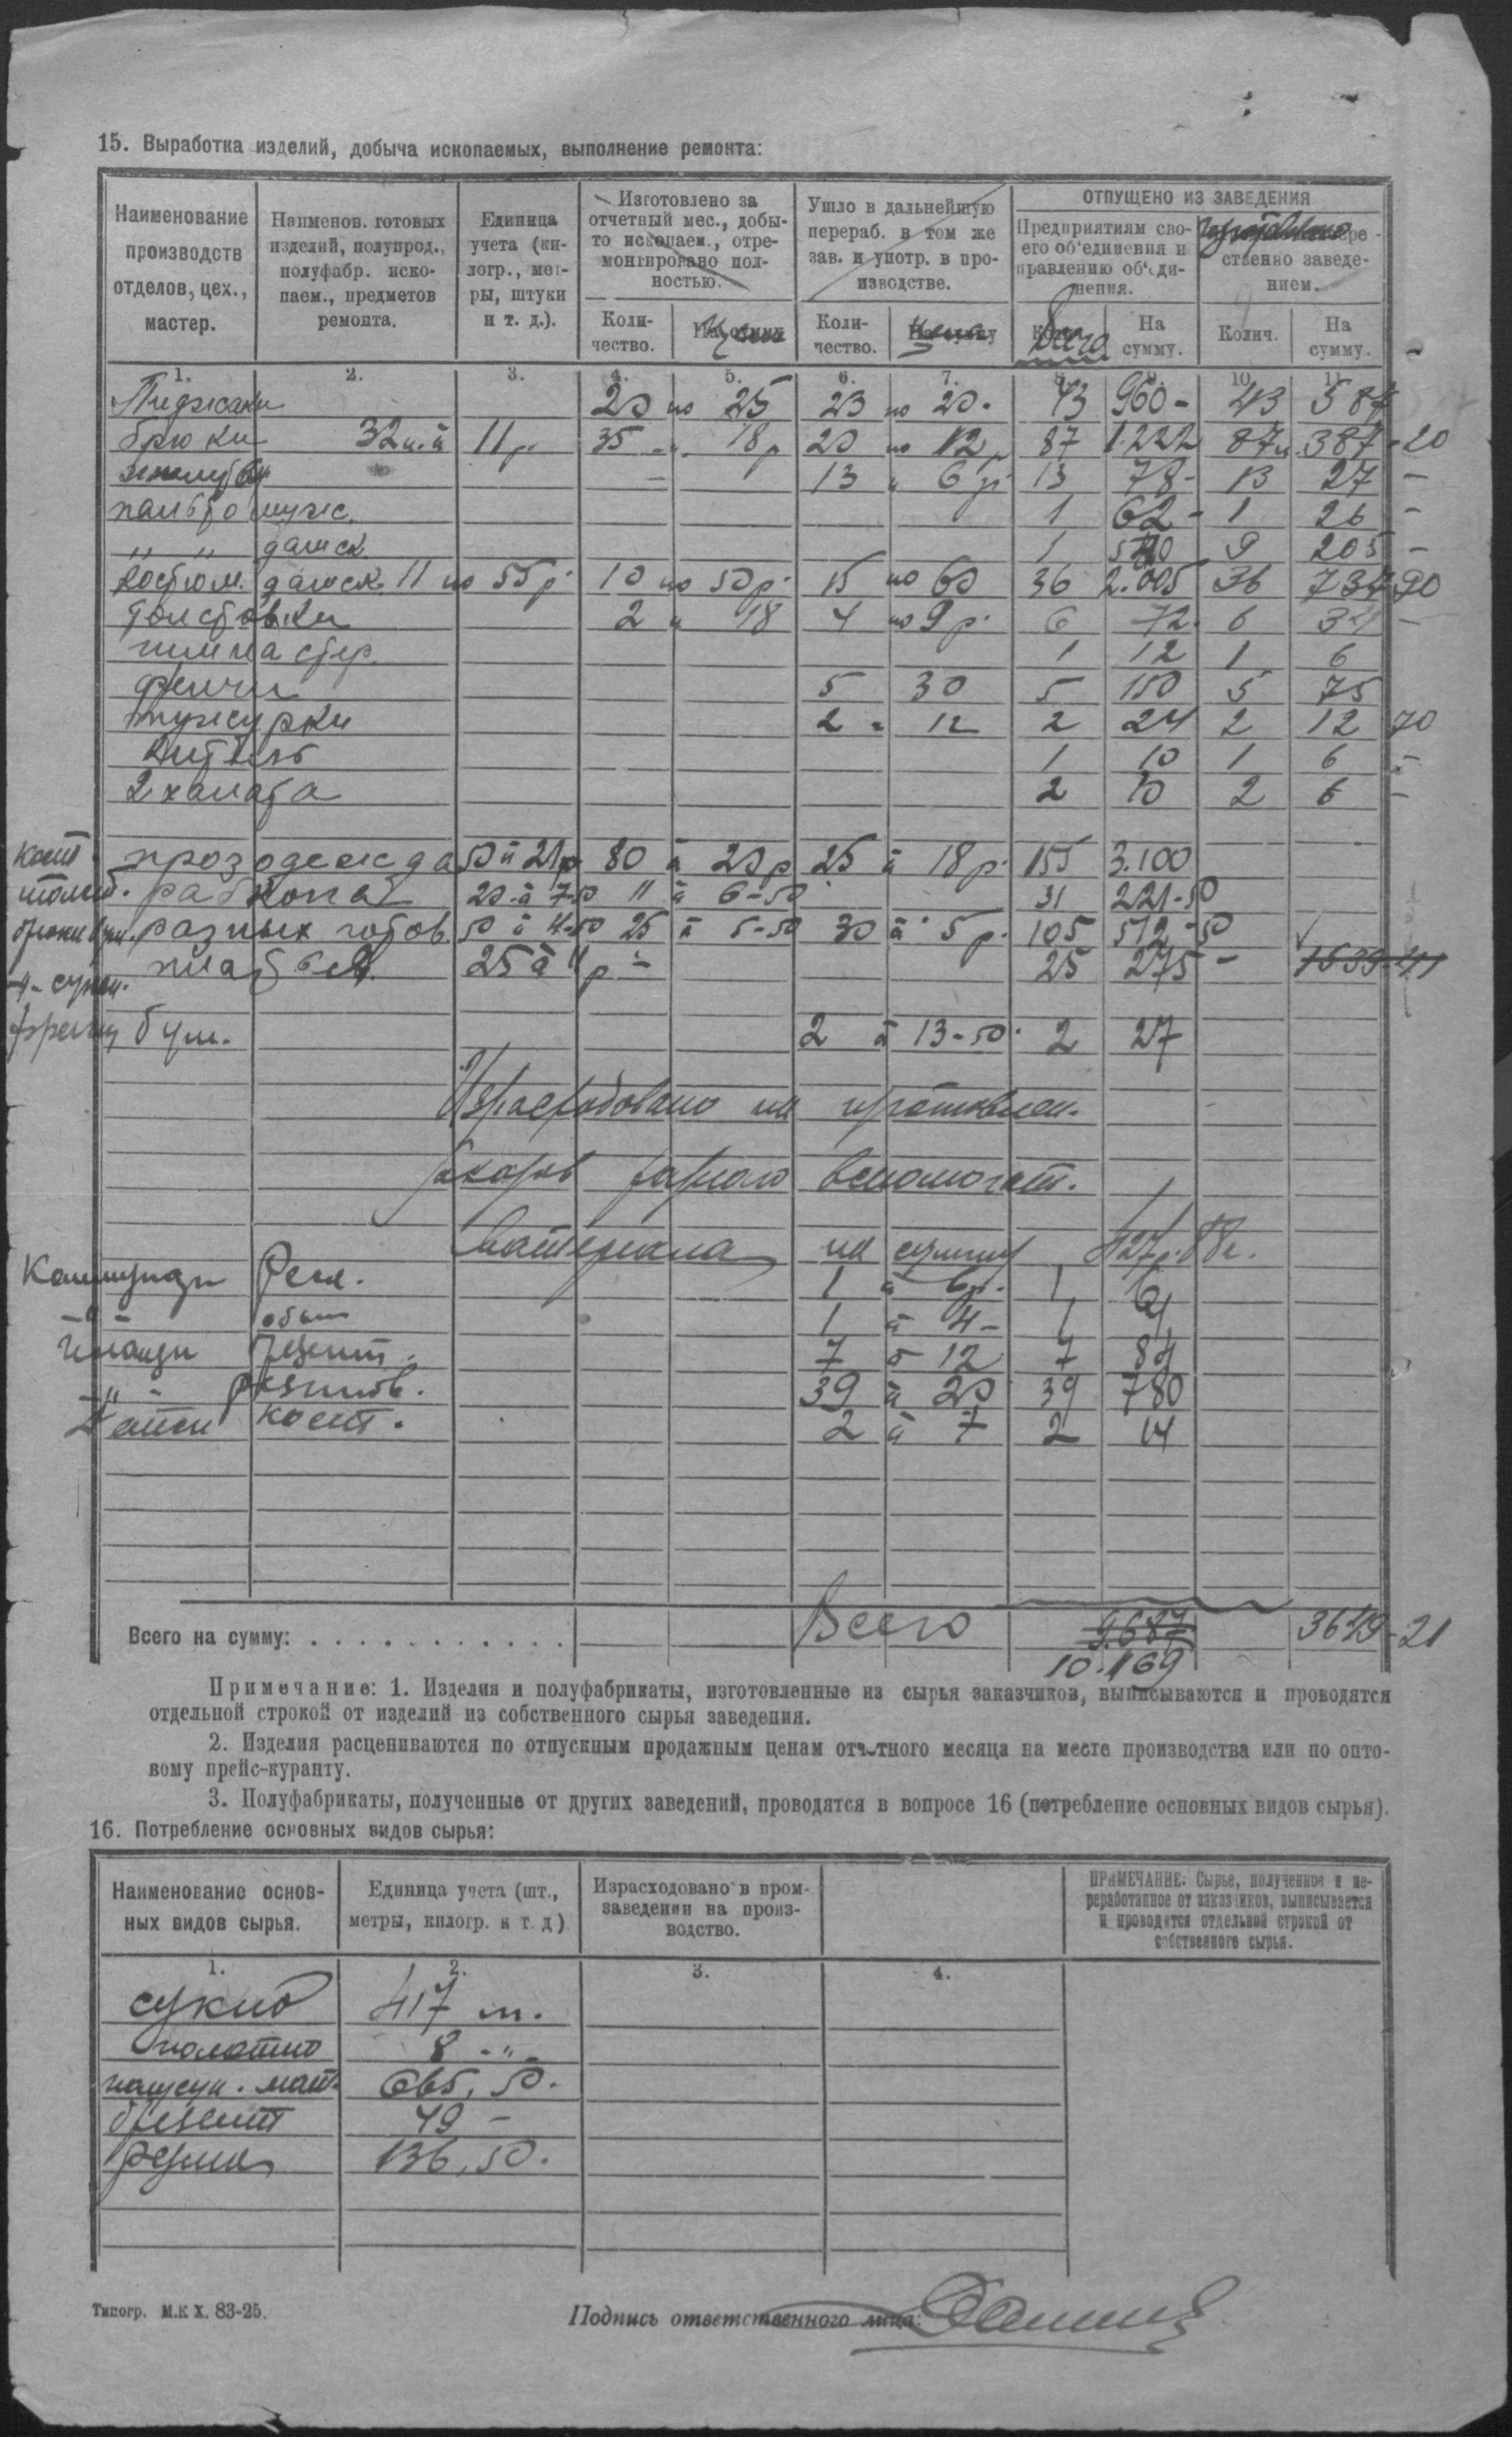 15. Выработка изделий, добыча ископаемых, выполнение ремонта:
Наименование производств отделов, цех., мастер.
Наименов. готовых изделий, полупрод., полуфабр. иско-паем., предметов ремонта.
Единица учета (ки-логр., мет-ры, штуки и т. д.).
Изготовлено за отчетный мес., добы-то ископаем., отре-монтировано пол-ностью.
Ушло в дальнейшую перераб. в том же зав. и употр. в про-изводстве.
ОТПУЩЕНО ИЗ ЗАВЕДЕНИЯ
Предприятиям сво-его об'единения и правлению об'еди-нения.
ственно заведе-нием.
Коли-чество.
Коли-чество.
Всего
На сумму.
Колич.
На сумму.
1. 2. 3. 4. 5. 6. 7. 8. 9. 10. 11.
Пиджаки 20 по 25 23 по 20. 43 960- 43 587
брюки 32 ш. à 11 р. 35 -"- 18 р 20 по 12 р 87 1.222 87 387-20
13 " 6 р. 13 78- 13 27 -
пальто мужс. 1 62- 1 26 -
" " дамск. 9 205 -
Костюм. дамск. 11 по 55 р. 10 по 50 р. 15 по 60 36 2.005 36 734 90
Толстовки 2 " 18 4 по 9 р. 6 72. 6 34 -
гимнастер. 1 12 1 6
френчи 5 30 5 150 5 75
тужурки 2 " 12 2 24 2 12 70
Китель 1 10 1 6 -
2 халата 2 10 2 6 -
Кост. прозодежда 50 à 21 р 80 à 20 р 25 à 18 р. 155 3.100
20 à 7-50 11 à 6-50 31 221-50
брюки разных готов. 50 à 4-50 25 à 5-50 30 à 5 р. 105 512-50
25 à 11 р - 25 275 - 1639-41
френчи бум. 2 à 13-50. 2 27
Израсходовано на изготовлен.
разного вспомогат.
материала на сумму 427 р. 88 к.
1 à 6 р. 1 6
-"- 1 à 4- 1 4
брезент. 7 à 12 7 84
-"- резинов. 39 à 20 39 780
кост. 2 à 7 2 14
Всего на сумму: . . . . . . . . . . . . Всего 9.687 3649-21
10.169
Примечание: 1. Изделия и полуфабрикаты, изготовленные из сырья заказчиков, выписываются и проводятся
отдельной строкой от изделий из собственного сырья заведения.
2. Изделия расцениваются по отпускным продажным ценам отчетного месяца на месте производства или по опто-
вому прейс-куранту.
3. Полуфабрикаты, полученные от других заведений, проводятся в вопросе 16 (потребление основных видов сырья).
16. Потребление основных видов сырья:
Наименование основ-ных видов сырья.
Единица учета (шт., метры, килогр. и т. д.)
Израсходовано в пром-заведении на произ-водство.
ПРИМЕЧАНИЕ: Сырье, полученное и пе-реработанное от заказчиков, выписывается и проводится отдельной строкой от собственного сырья.
1. 2. 3. 4.
сукно 417 м.
полотно 8 -"-
мат. 665,50.
брезент 49 -
резина 136,50.
Типогр. М.К Х. 83-25.
Подпись ответственного лица: